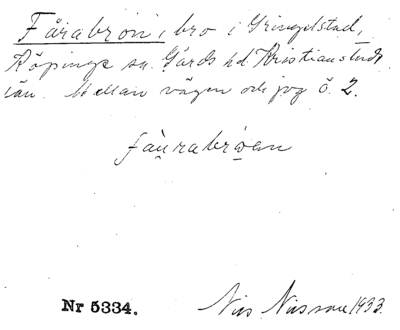 Fårabron, bro i Gringelstad,
Köpinge sn. Gärds hd. Kristianstads
län. Mellan vägen och jog ö. 2.
fàu̬rabrǫen
Nr 5334. Nils Nilsson 1933.